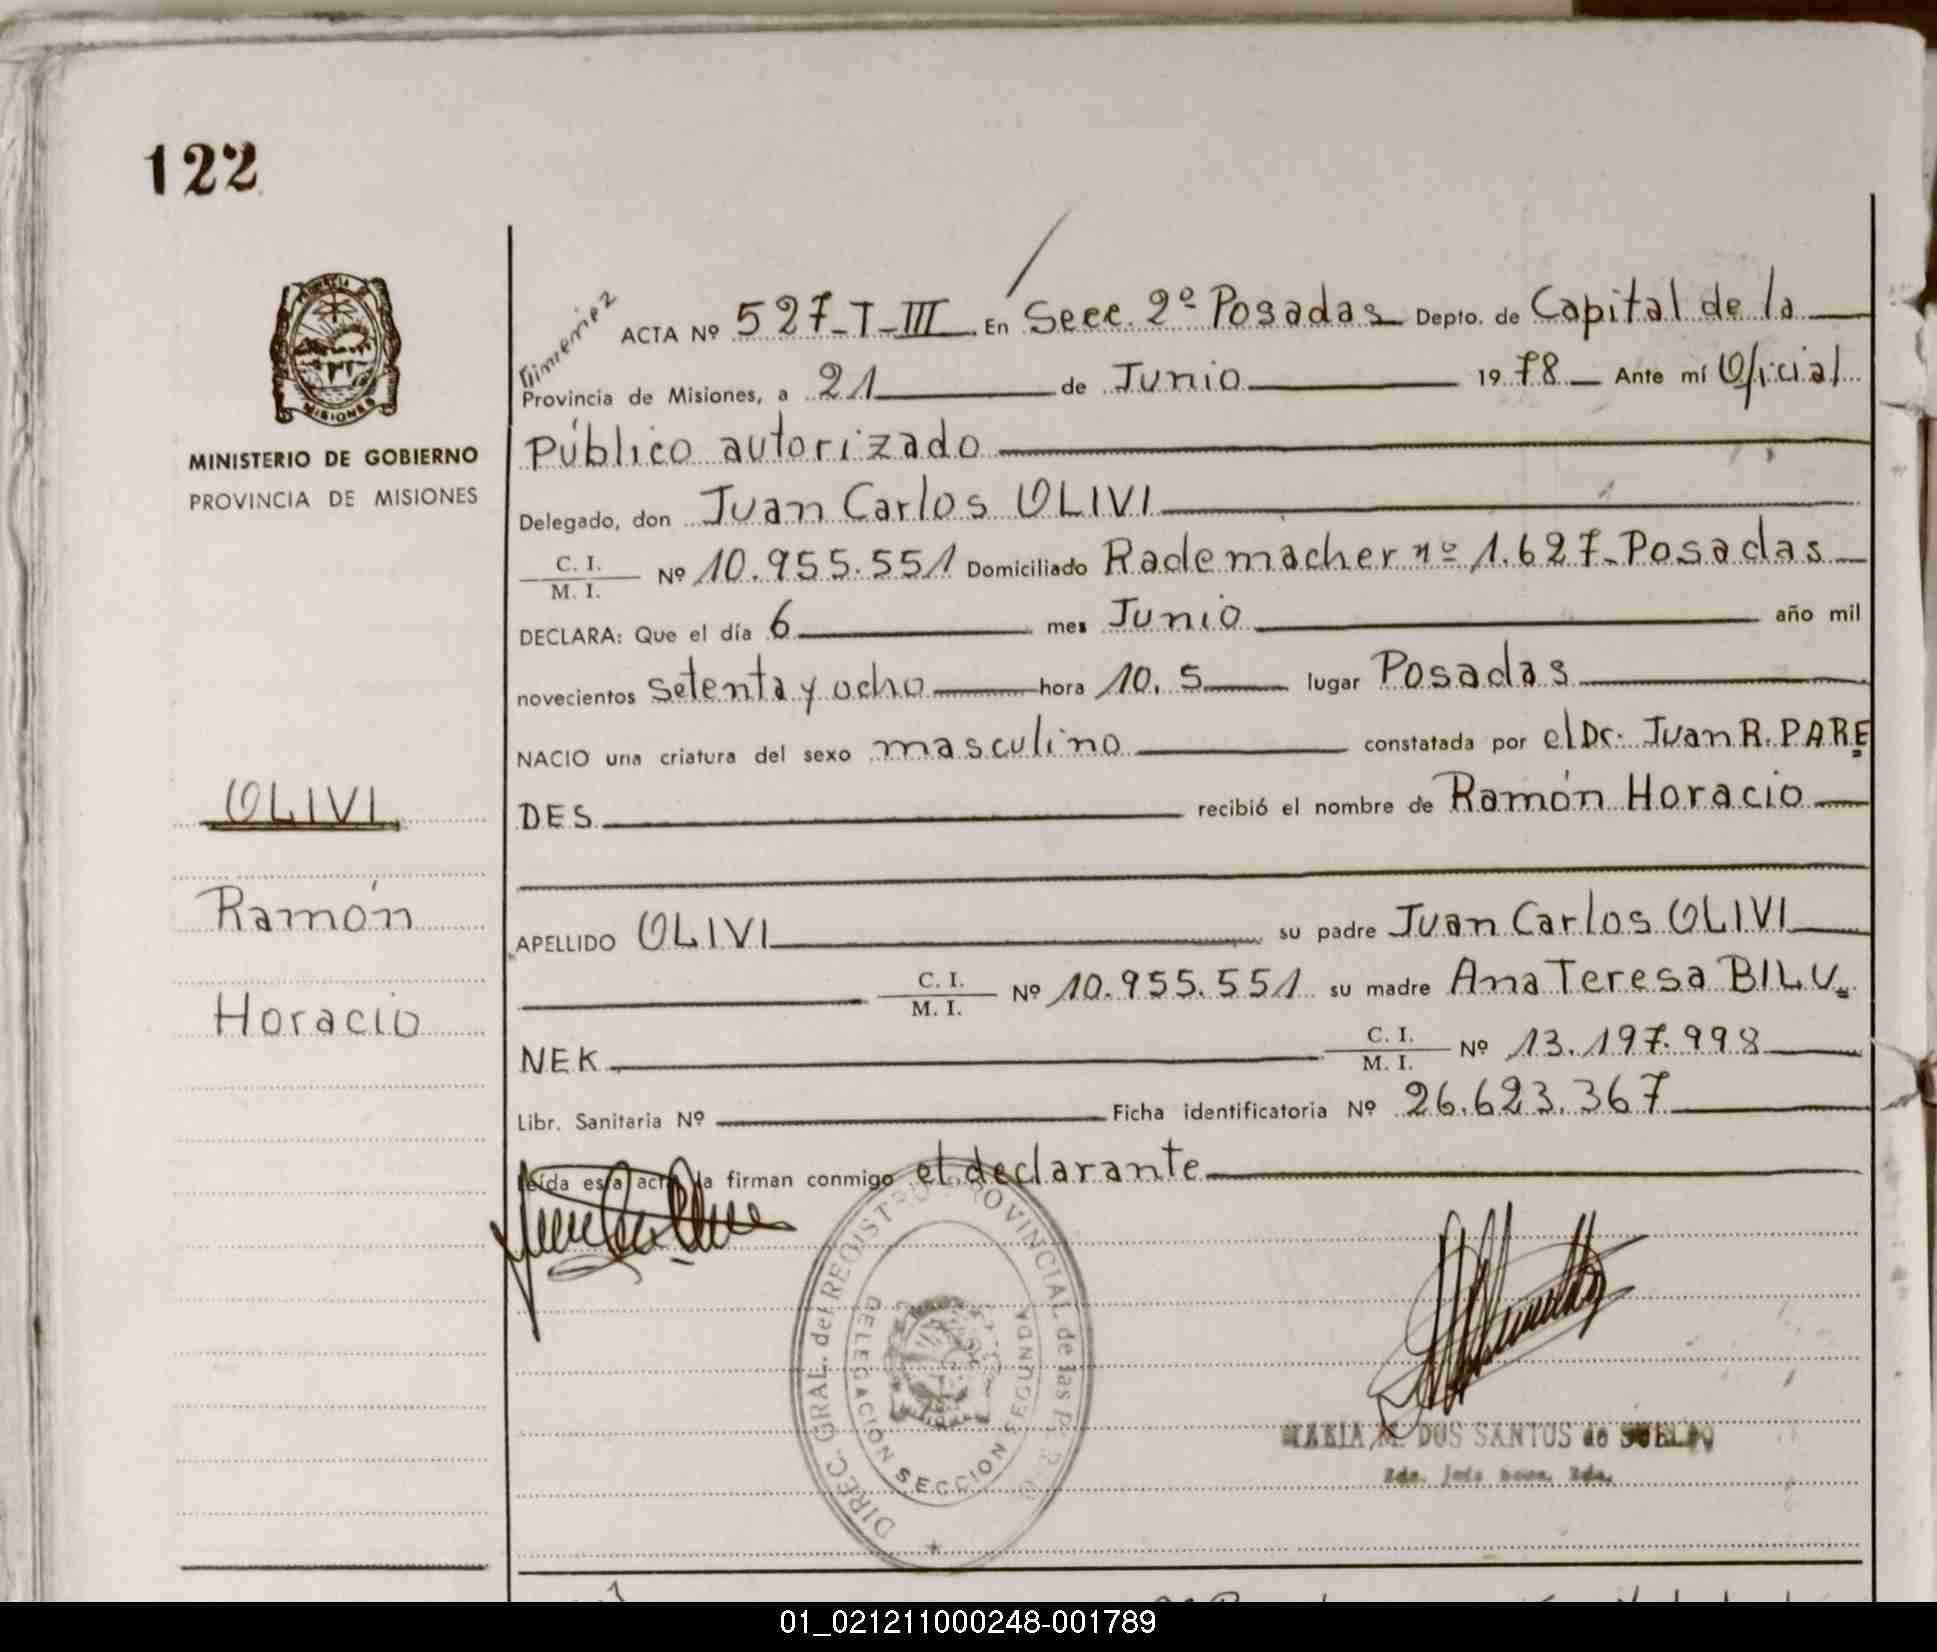 122
MISIONES
MINISTERIO DE GOBIERNO
PROVINCIA DE MISIONES
OLIVI
Ramón
Horacio
Gimenez
ACTA Nº 527-T-III En Secc. 2º Posadas Depto. de Capital de la
Provincia de Misiones, a 21 de Junio 1978 Ante mí Oficial
Público autorizado
Delegado, don Juan Carlos OLIVI
C. I.
M. I. Nº 10.955.551 Domiciliado Rademacher nº 1.627-Posadas
DECLARA: Que el día 6 mes Junio año mil
novecientos setenta y ocho hora 10.5 lugar Posadas
NACIO una criatura del sexo masculino constatada por el Dr. Juan R. PARE
DES recibió el nombre de Ramón Horacio
APELLIDO OLIVI su padre Juan Carlos OLIVI
C. I.
M. I. Nº 10.955.551 su madre Ana Teresa BILU
NEK C. I.
M. I. Nº 13.197.998
Libr. Sanitaria Nº Ficha identificatoria Nº 26.623.367
Leída esta acta la firman conmigo el declarante
DIREC. GRAL. del REGISTRO PROVINCIAL de las P.
DELEGACIÓN SECCION SEGUNDA
MARIA M. DOS SANTOS de SUELDO
01_021211000248-001789